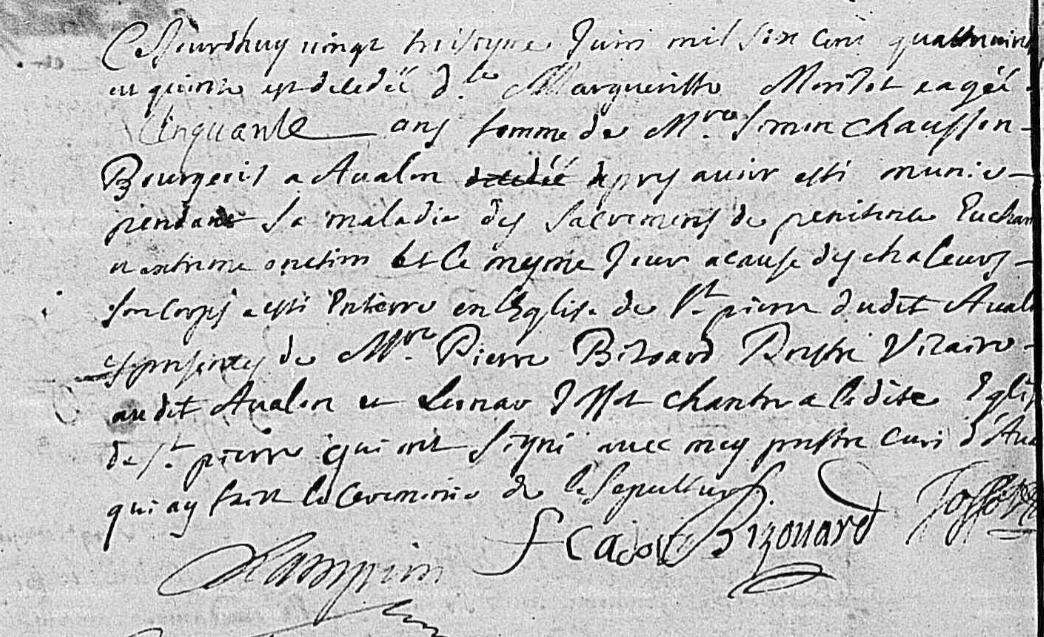 Ce Jourdhuy vingt troisieme Juin mil six cent quattrevin
et quinze est decedée d.lle Margueritte Morilot eagée
Cinquante ans femme de M.re Simon Chausson
Bourgeois a Avalon decedée apres avoir esté munie
pendant sa maladie des sacremens de penitence Euchari
et extreme onction et le mesme Jour a cause des chaleurs
son corps a esté Enterré en lEglise de St pierre dudit Aval
es presences de M.re Pierre Bizouard Prestre Vicaire
audit Avalon et Leonard chantre a ladite Eglis
de St pierre qui ont signé avec moy prestre curé d'Ava
qui ay fait la Ceremonie de la sepulture.
Bizouard